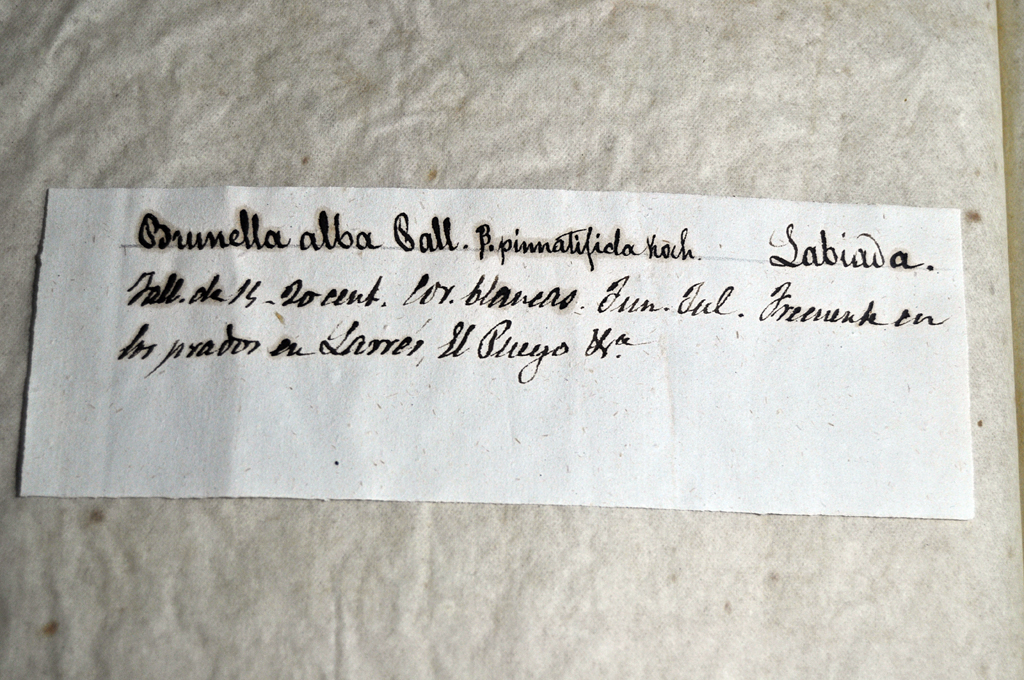 Brunella alba Pall. β. pinnatifida Koch. Labiada.
Tall. de 15-20 cent. Cor. blancas. Jun. Jul. Frecuente en
los prados en Larrés, El Pueyo &.ª